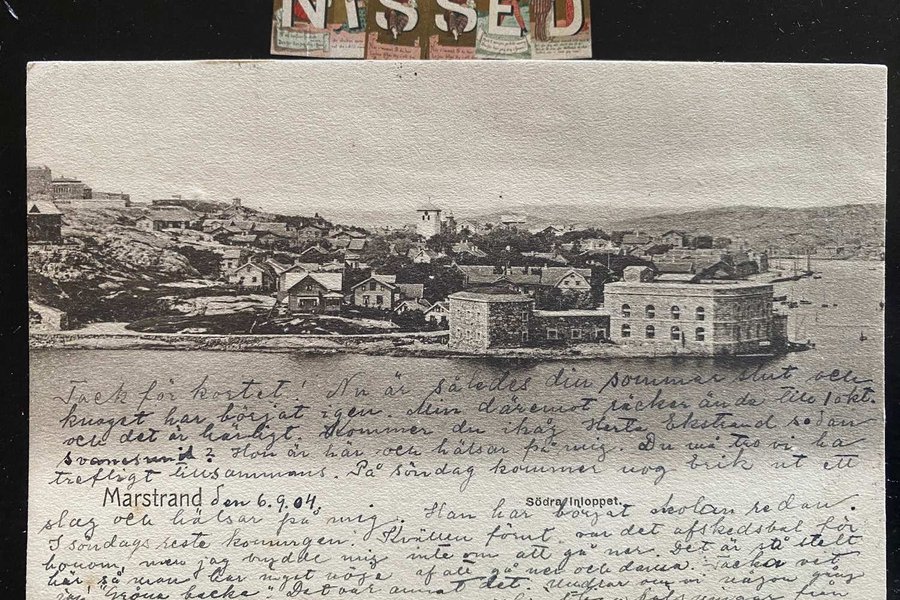 NISSED
Tack för kortet! Nu är således din sommar slut och
knoget har börjat igen. Min däremot räcker ända till 1 okt.
och det är härligt. Kommer du ihåg Herta Ekstrand sedan
Svanesund? Hon är här och hälsar på mig. Du må tro vi ha
trefligt tillsammans. På söndag kommer nog Erik ut ett
Marstrand den 6.9.04. Södra Inloppet.
slag och hälsar på mig. Han har börjat skolan redan.
I söndags reste konungen. Kvällen förut var det afskedsbal för
honom, men jag brydde mig inte om att gå ner. Det är så stelt
här, så man har intet nöje af att gå ner och dansa. Tacka vet
"Gröna backe". Det var annat det. Undrar om vi någon gång
från